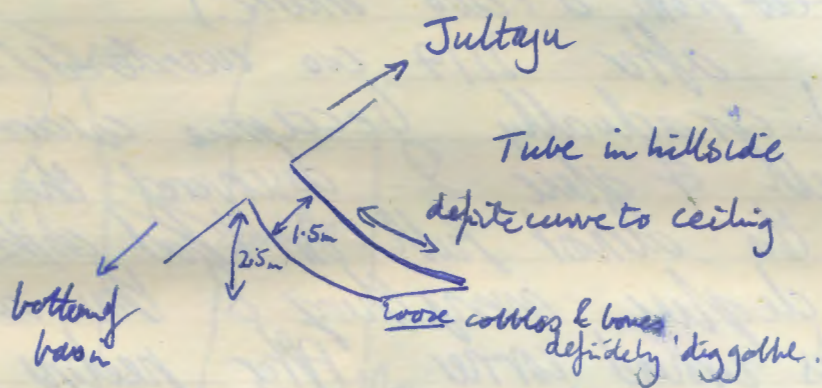 Jultayu
Tube in hillside
definite curve to ceiling
1.5m
2.5m
bottom of
basin
loose cobbles & bones
definitely 'diggable.